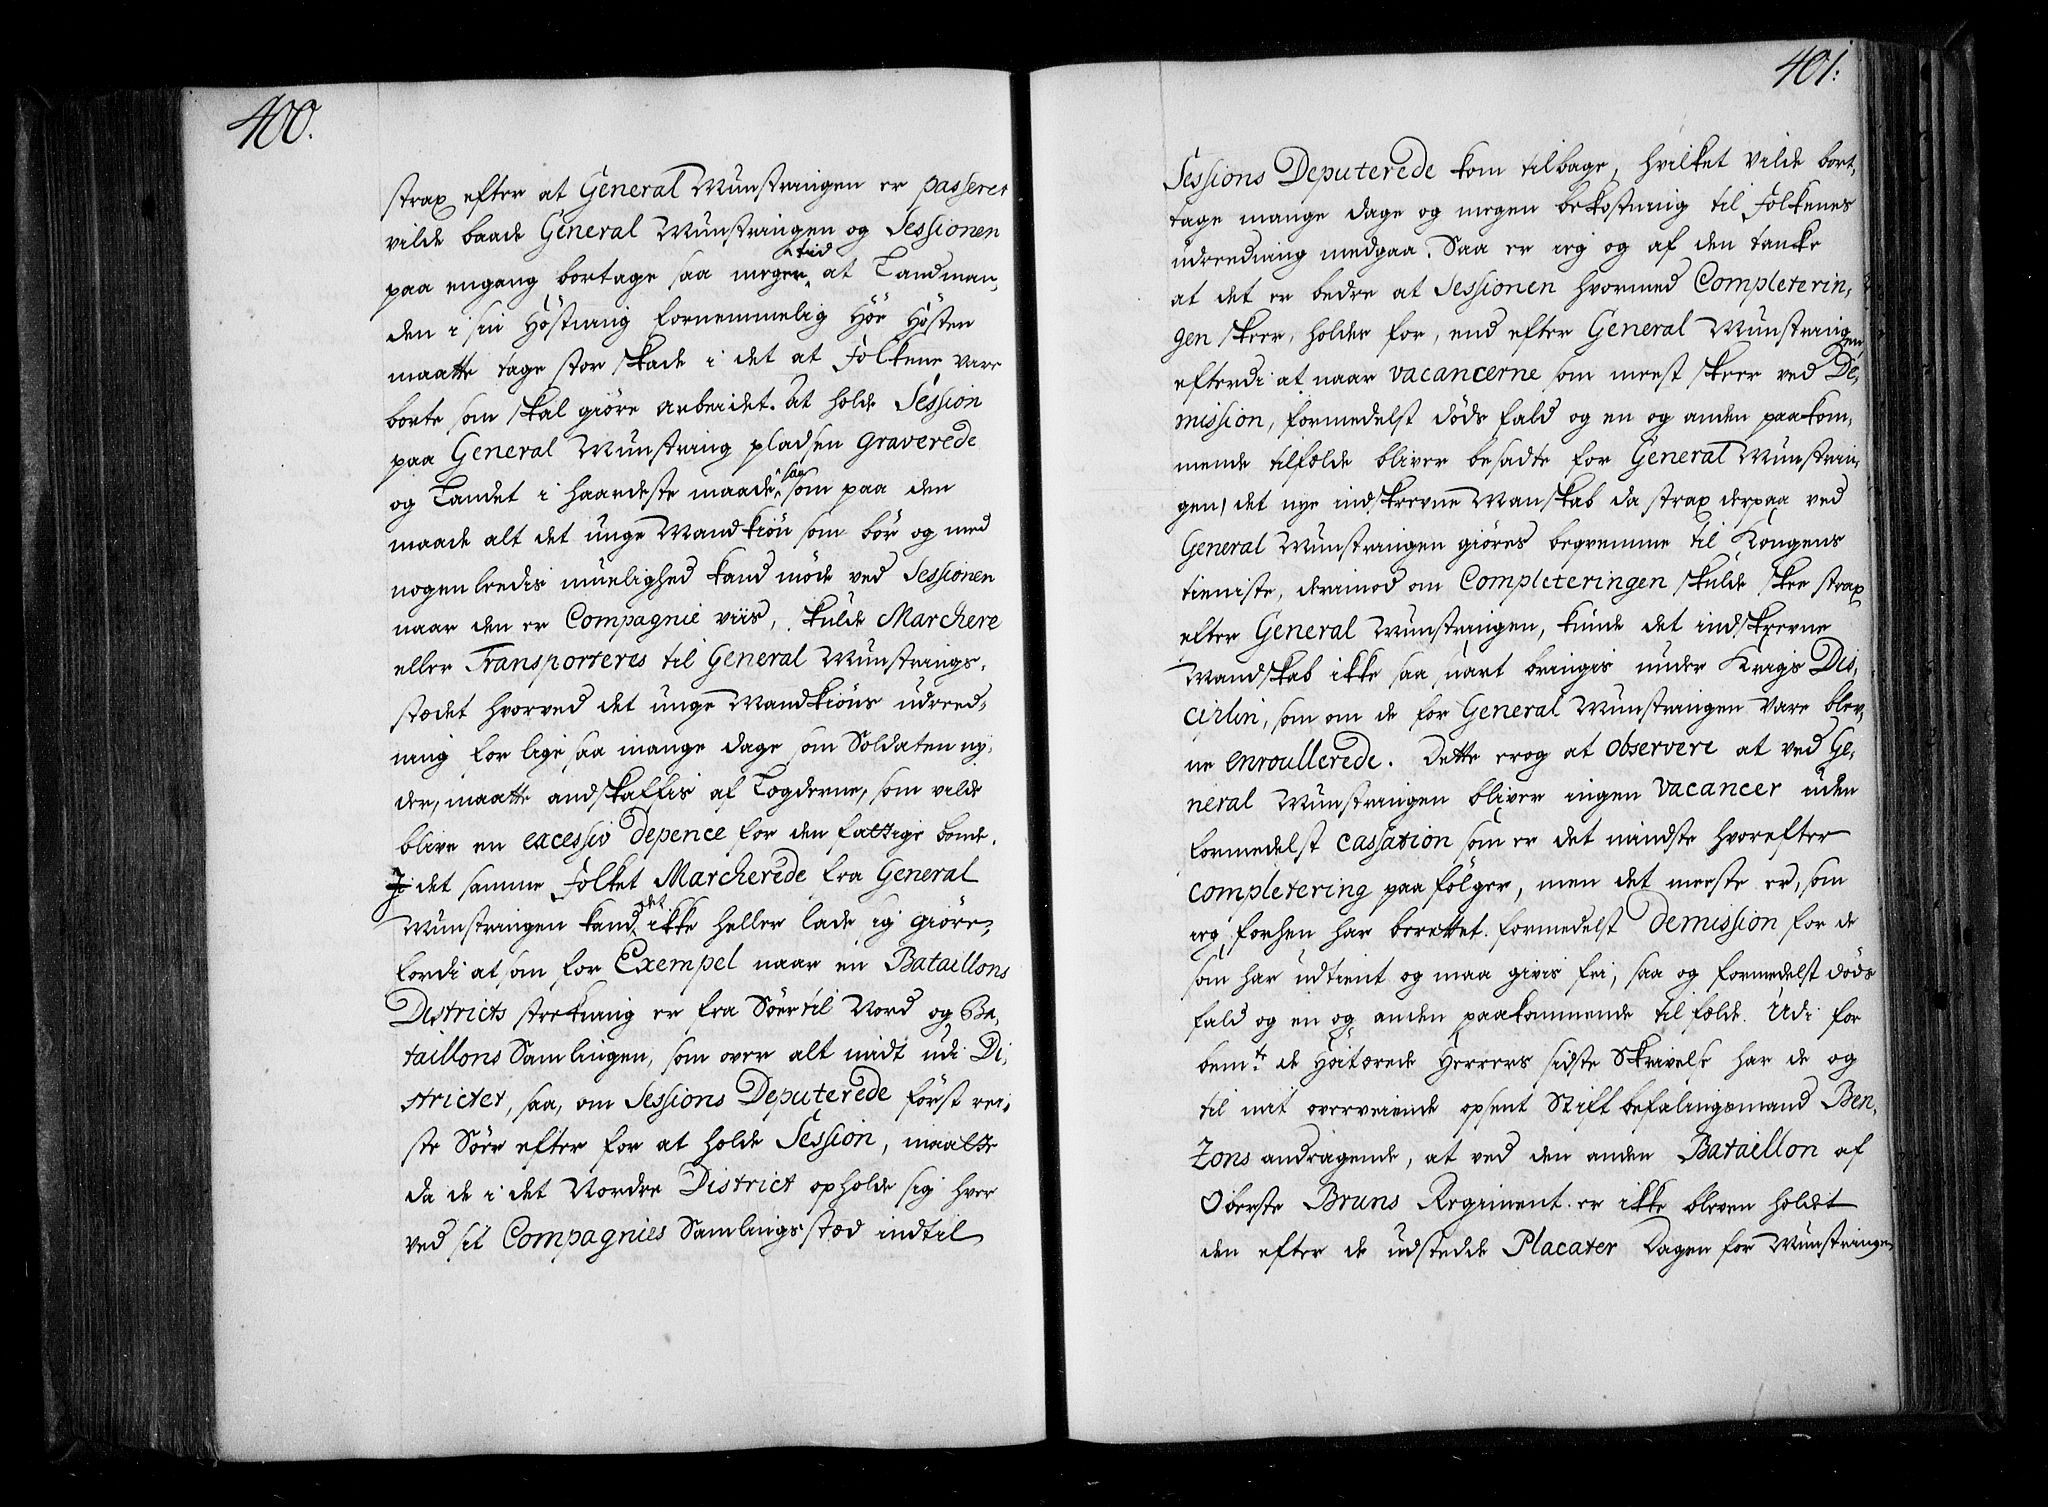 400.
strax efter at General Munstringen er passeret
vilde baade General Munstringen og Sessionen
paa engang bortage saa megen tid at Landman-
den i sin Höstning fornemmelig Höe Hösten
maatte tage stor skade i det at Folkene vare
borte som skal giöre arbeidet. At holde Session
paa General Munstring pladsen graverede
og Landet i haardeste maade, saa som paa den
maade alt det unge Mandkiön som bör og med
nogenledis muelighed kand möde ved Sessionen
naar den er Compagnie viis, skulde Marchere
eller Transporteres til General Munstrings-
stædet hvorved det unge Mandkiöns udreed-
ning for lige saa mange dage som Soldaten ny-
der, maatte andskaffis af Lægderne, som vilde
blive en excessiv Depence for den fattige bonde.
I det samme Folket Marcherede fra General
Munstringen kand det ikke heller lade sig giöre,
fordi at som for Exempel naar en Bataillons
Districts strekning er fra Söer til Nord og Ba-
taillons Samlingen, som over alt midt udi Di-
strictet, saa, om Sessions Deputerede först rei-
ste Söer efter for at holde Session, maatte
da de i det Nordre District opholde sig hver
ved sit Compagnies Samlings stæd indtil
401.
Sessions Deputerede kom tilbage, hvilket vilde bort-
tage mange dage og megen bekostning til Folkenes
udreedning medgaa. Saa er ieg og af den tanke
at det er bedre at Sessionen hvormed Completerin-
gen skeer, holdes for, end efter General Munstringen
efterdi at naar vacancerne som meest skeer ved De-
mission, formedelst döds fald og en og anden paakom-
mende tilfælde bliver besadte for General Munstrin-
gen, det nye indskrevne Manskab da strax derpaa ved
General Munstringen giöres beqvemme til Kongens
tieniste, derimod om Completeringen skulde skee strax
efter General Munstringen, kunde det indskrevne
Mandskab ikke saa snart bringis under Krigs Dis-
ciplin, som om de for General Munstringen vare blev-
ne enroullerede. Dette er og at observere at ved Ge-
neral Munstringen bliver ingen vacancer uden
formedelst cassation som er det mindste hvorefter
completering paa fölger, men det meeste er, som
ieg forhen har berettet formedelst Demission for de
som har udtient og maa givis fri, saa og formedelst döds
fald og en og anden paakommende tilfælde. Udi for
bem.te de Höitærede Herrers sidste Skrivelse har de og
til mit overveiende opsent Stiftbefalingsmand Ben-
zons andragende, at ved den anden Bataillon af
Oberste Bruns Regiment er ikke bleven holdet
den efter de udstedde Placater Dagen for Munstringen